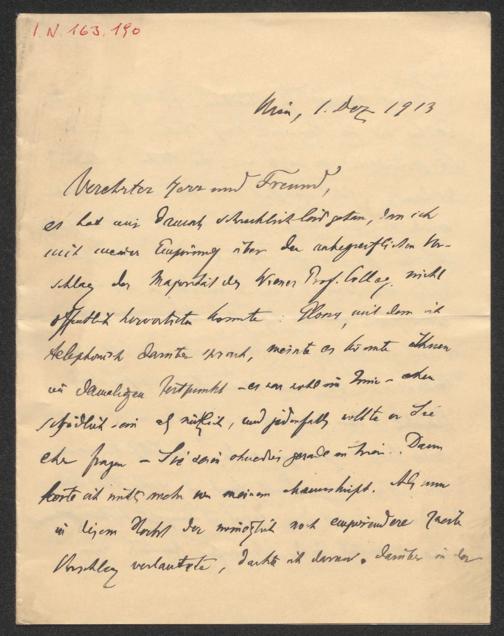 I. N. 163.190
Wien, 1. Dez 1913
Verehrter Herr und Freund,
es hat mir damals schrecklich leid getan, dass ich
mit meiner Empörung über den unbegreiflichen Vor-
schlag der Majorität des Wiener Prof. Colleg. nicht
öffentlich hervortreten konnte: Glossy, mit dem ich
telephonisch darüber sprach, meinte es könnte Ihnen
im damaligen Zeitpunkt – es war wohl im – eher
schädlich sein als nützlich, und jedenfalls wollte er Sie
eher fragen – Sie seien ohnedies gerade in Wien. Dann
hörte ich nichts mehr von meinem Manuskript. Als nun
in diesem Herbst der womöglich noch empörendere zweite
Vorschlag verlautete, dachte ich daran, darüber in der